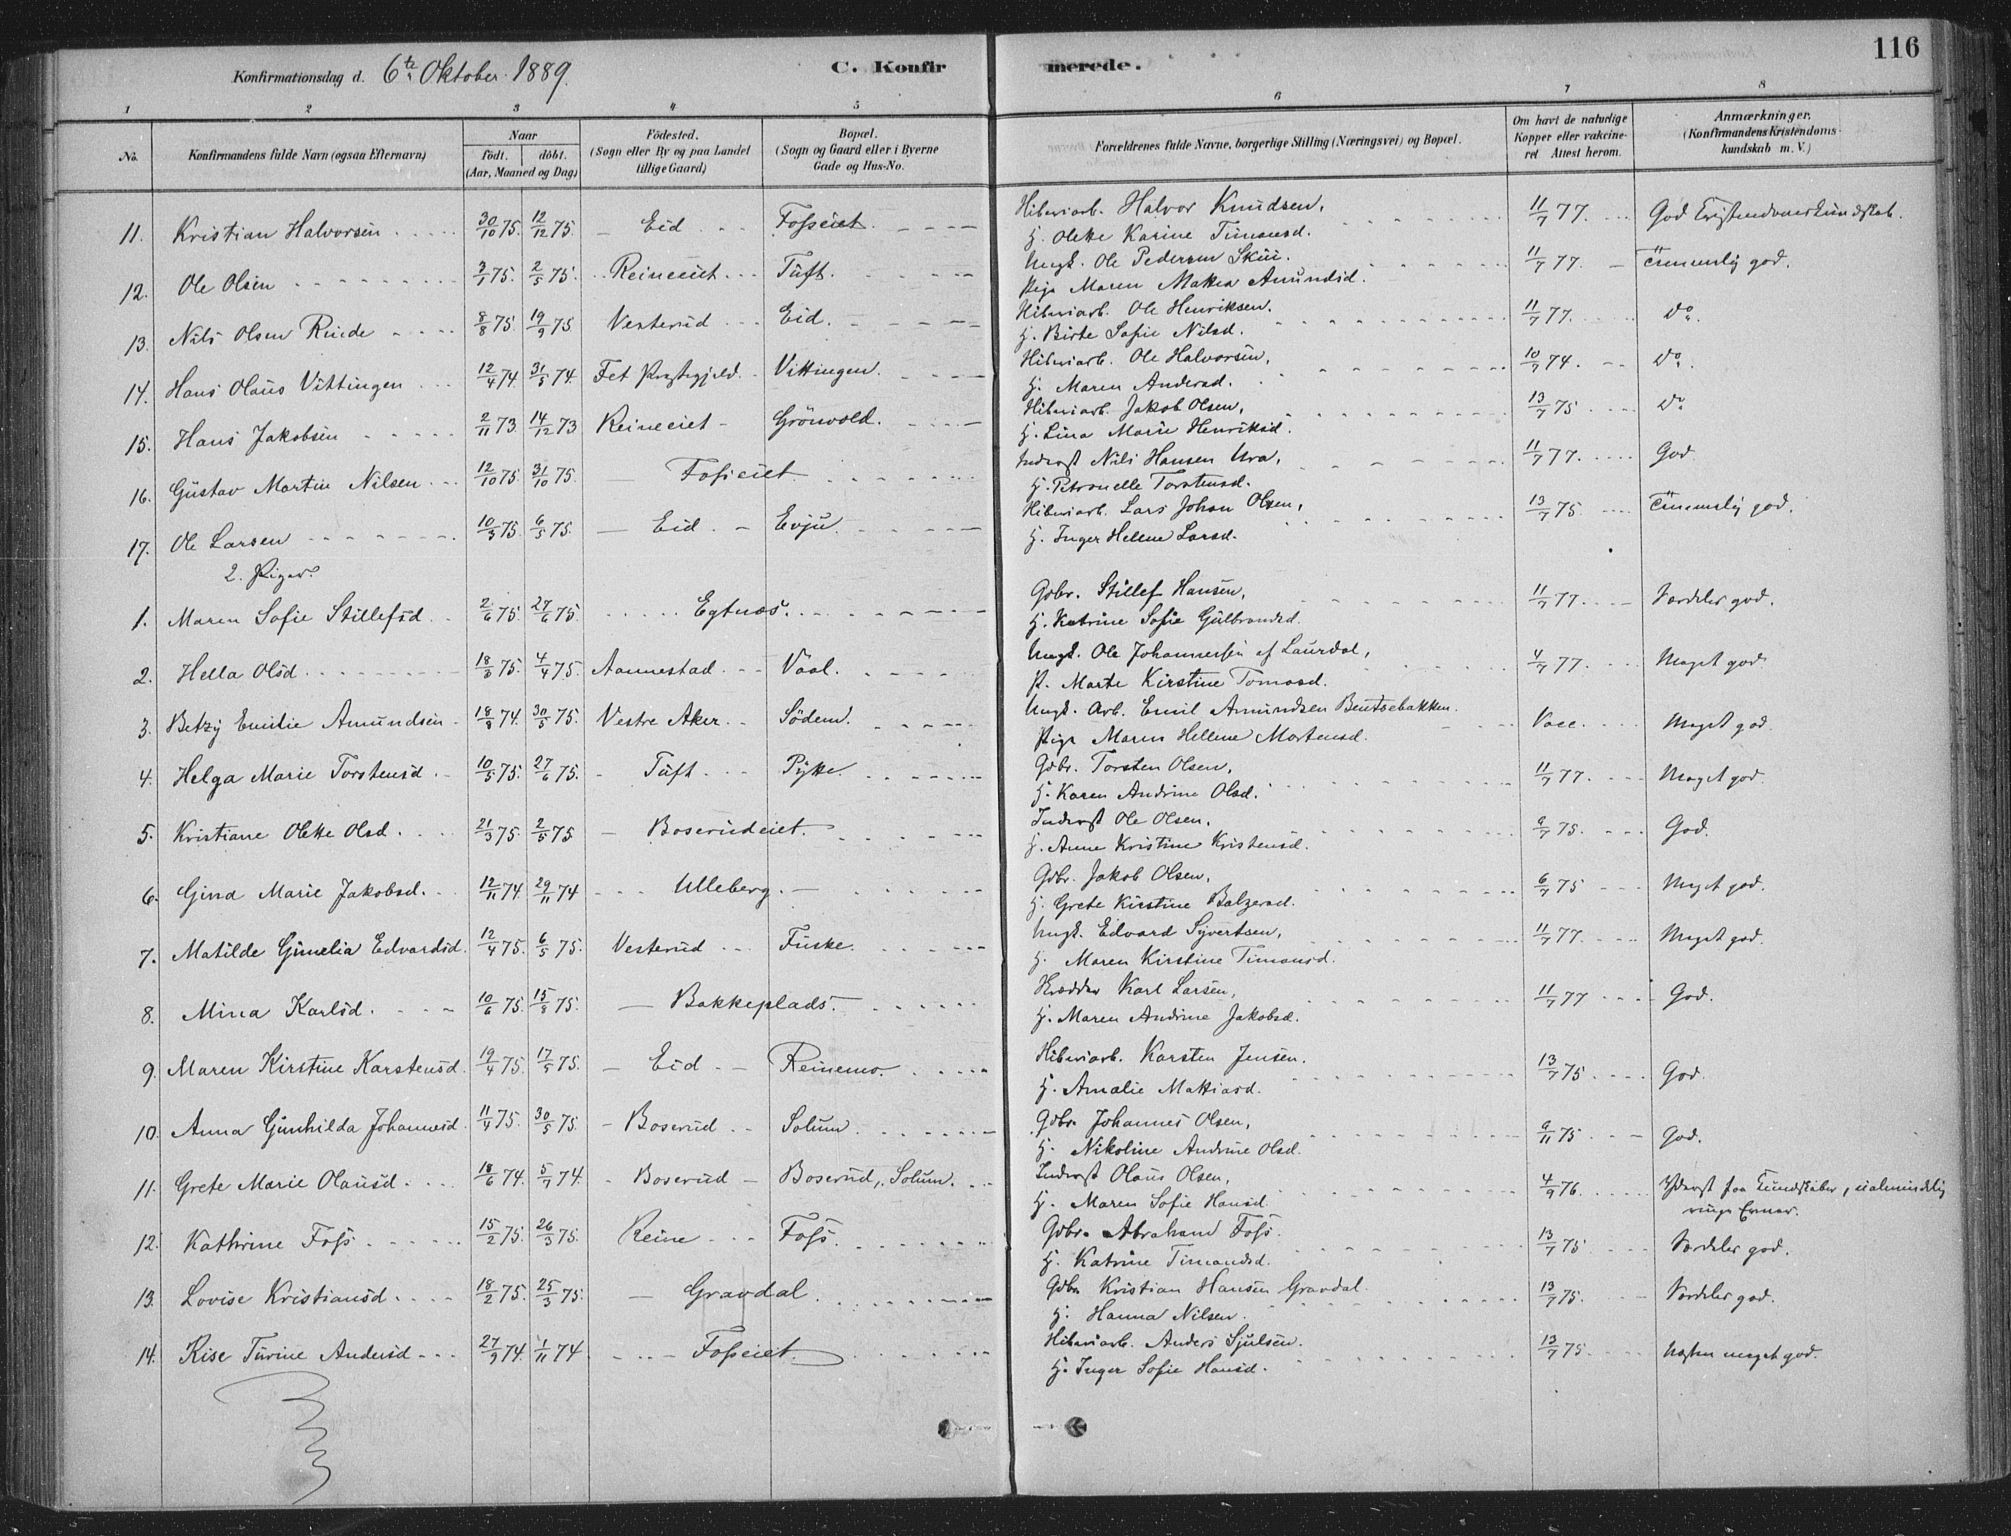 116
Konfirmationsdag d. 6te Oktober 1889.
C. Konfirmerede.
1 2 3 4 5 6 7 8
No. Konfirmandens fulde Navn (ogsaa Efternavn) Naar født. døbt. (Aar, Maaned og Dag) Födested. (Sogn eller By og paa Landet tillige Gaard) Bopæl. (Sogn og Gaard eller i Byerne Gade og Hus-No. Forældrenes fulde Navne, borgerlige Stilling (Næringsvei) og Bopæl. Om havt de naturlige Kopper eller vaccineret Attest herom. Anmærkninger. (Konfirmandens Kristendomskundskab m. V.)
11. Kristian Halvorsen 30/10 75. 12/12 75. Eid Fosseiet Halvor Knudsen, 11/7 77. God
H. Olette Karine Timansd.
12. Ole Olsen 3/1 75. 2/5 75. Reineeiet Tuft. Ungk. Ole Pedersen Skui. 11/7 77. Temmelig god.
Pige Maren Mathea Amundsd.
13. Nils Olsen Rude 8/8 75. 19/9 75 Vesterud Eid. Ole Henriksen. 11/7 77. Do.
H. Birte Sofie Nilsd.
14. Hans Olaus Vittingen 12/4 74. 31/5 74. Fet Præstegjeld Vittingen. Ole Halvorsen, 10/9 74. Do.
H. Maren Andersd.
15. Hans Jakobsen 2/11 73. 14/12 73 Reineeiet Grönvold. Jakob Olsen, 13/7 75 Do
H. Lina Marie Henriksd.
16. Gustav Martin Nilsen 12/10 75. 31/10 75. Fosseiet Inderst Nils Hansen Ura, 11/7 77. God
H. Petronelle Torstensd.
17. Ole Larsen 10/3 75. 6/5 75. Eid Evju Lars Johan Olsen, 13/7 75. Temmelig god.
H. Inger Hellene Larsd.
2. Piger.
1. Maren Sofie Stillefsd 2/6 75. 27/6 75. Egtnæs. Gdbr. Stillef Hansen, 11/7 77. Særdeles god.
H. Katrine Sofie Gulbrandsd.
2. Hella Olsd 18/3 75. 4/4 75. Aamestad Vaal. Ungk. Ole Johannessen af Laurdal, 4/7 77. Meget god
P. Marte Kirstine Tomasd.
3. Betzy Emilie Amundsen 18/8 74. 30/5 75. Vestre Aker Södem. Ungk. Arb. Emil Amundsen Bentsebakken. Vacc. Meget god.
Pige Maren Hellene Mortensd.
4. Helga Marie Torstensd. 10/5 75. 27/6 75. Tuft Pytte. Gdbr. Torsten Olsen, 11/7 77. Meget god.
H. Karen Andrine Olsd.
5. Kristiane Olette Olsd. 21/3 75. 2/5 75 Boserudeiet. Inderst Ole Olsen, 9/7 75. God.
H. Anne Kristine Kristensd.
6. Gina Marie Jakobsd. 12/11 74. 29/11 74 Ulleberg. Gdbr. Jakob Olsen, 6/7 75 Meget god.
H. Grete Kirstine Balzersd.
7. Matilde Gunelia Edvardsd. 12/4 75. 6/5 75. Vesterud Fuske. Ungk. Edvard Syvertsen, 11/7 77. Meget god.
H. Maren Kirstine Timansd.
8. Mina Karlsd. 10/6 75. 15/8 75. Bakkeplads. Skrædder Karl Larsen, 11/7 77 God.
H. Maren Andrine Jakobsd.
9. Maren Kirstine Karstensd. 19/4 75. 17/5 75. Eid Reinemo. Karsten Jensen. 13/7 75. God.
H. Amalie Mattiasd.
10. Anna Gunhilda Johannesd. 11/4 75. 30/5 75. Boserud Solum. Gdbr. Johannes Olsen, 9/11 75 God.
H. Nikoline Andrine Olsd.
11. Grete Marie Olausd. 18/6 74. 5/7 74. Boserud Boserud, Solum. Inderst Olaus Olsen, 4/9 76. Yderst faa Kundskaber, ualmindelig ringe Evner.
H. Maren Sofie Hansd.
12. Kathrine Foss 15/2 75. 26/3 75. Reine Foss. Gdbr. Abraham Foss. 13/7 75 Særdeles god.
H. Katrine Timandsd.
13. Lovise Kristiansd. 18/2 75. 25/3 75. Gravdal Gdbr Kristian Hansen Gravdal. 13/7 75. Særdeles god.
H. Hanna Nilsen.
14. Rise Turine Andersd 27/9 74. 1/11 74. Fosseiet. Anders Sjulsen. 13/7 75. Næsten meget god.
H. Inger Sofie Hansd.